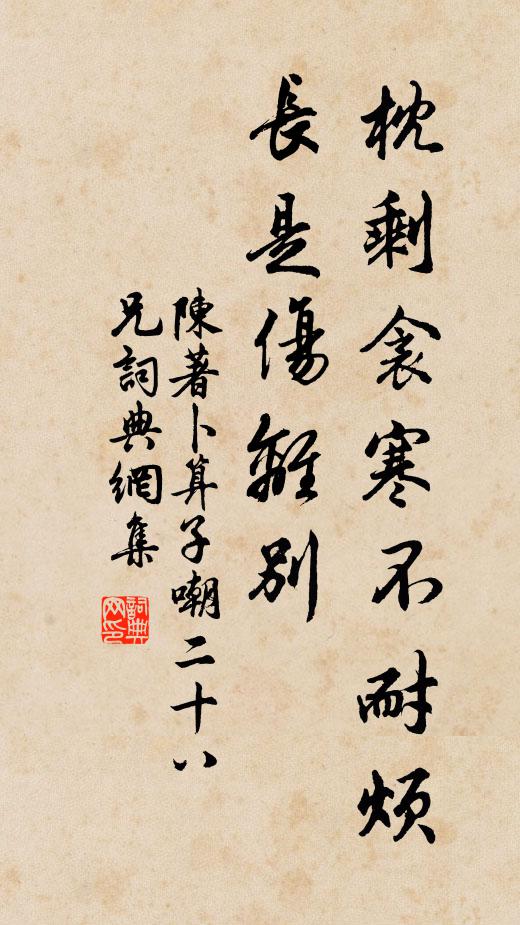 枕剩衾寒不耐煩
長是傷離別
陳著卜算子嘲二十八
兄詞典網集
詞典网印